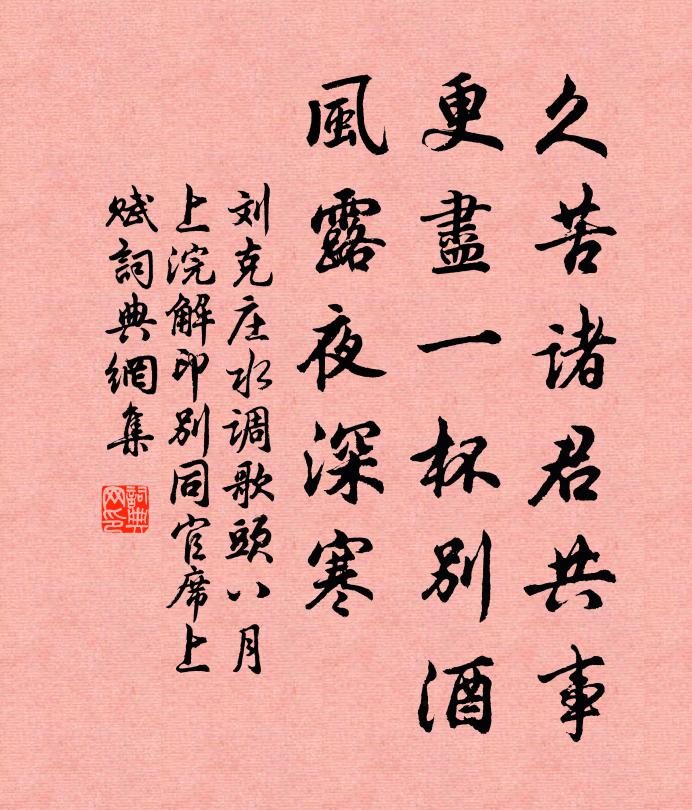 久苦诸君共事
更盡一杯别酒
風露夜深寒
刘克庄水调歌頭八月
上浣解印别同官席上
赋詞典網集
詞典网印